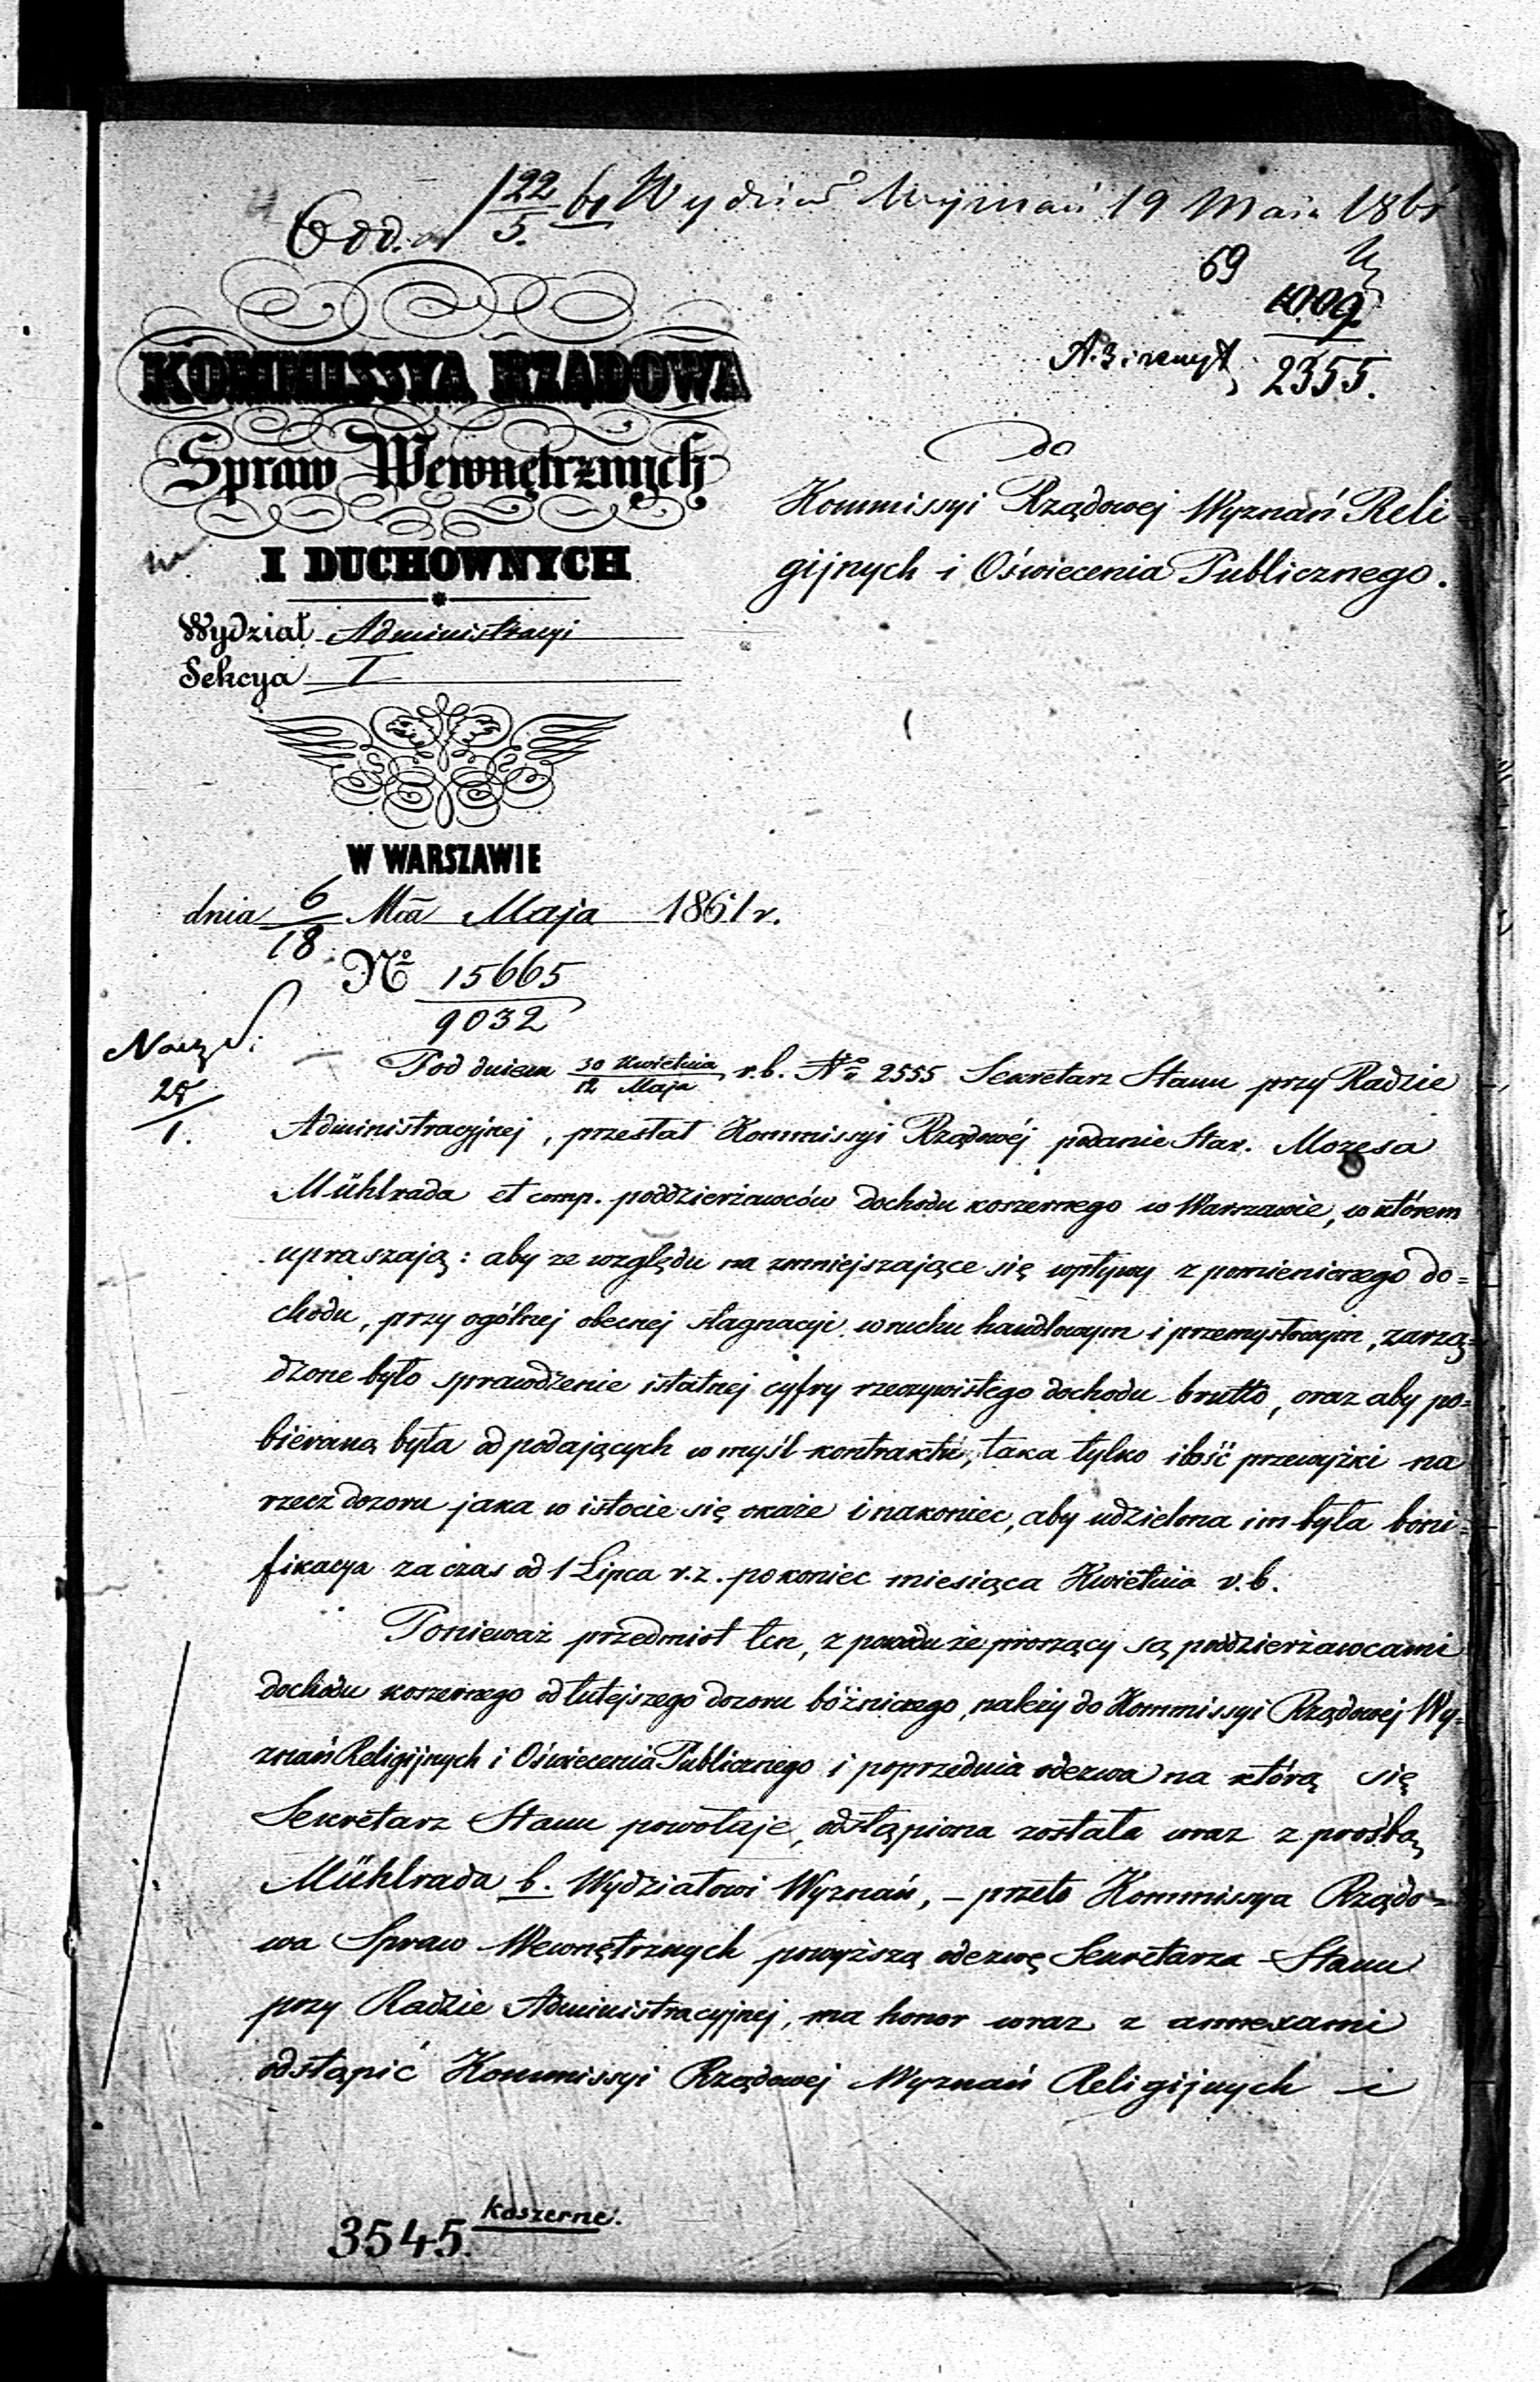 Odd. 22/5. 61 Wydział Wyznań 19 Maia 1861
69
1009
2355.
do
KOMMISSYA RZĄDOWA
Spraw Wewnętrznych
I DUCHOWNYCH
Kommissyi Rządowej Wyznań Reli-
gijnych i Oświecenia Publicznego.
Wydział Administracyi
Sekcya I
W WARSZAWIE
dnia 6/18 Mca Maja 1861 r.
No 15665
9032
Pod dniem 30 Kwietnia/12 Maja r.b. No 2555 Sekretarz Stanu przy Radzie
Administracyjnej, przesłał Kommissyi Rządowéj podanie Star. Mozesa
Mühlrada et comp. poddzierżawców dochodu koszernego w Warszawie, w którem
upraszają: aby ze względu na zmniejszające się wpływy z pomienionego do=
chodu, przy ogólnej obecnej stagnacyi w ruchu handlowym i przemysłowym, zarzą=
dzone było sprawdzenie istotnej cyfry rzeczywistego dochodu brutto, oraz aby po=
bieraną była od podających w myśl kontraktu, taka tylko ilość przewyżki na
rzecz dozoru jaka w istocie się okaże i nakoniec, aby udzielona im była boni=
fikacya za czas od 1 Lipca r.z. po koniec miesiąca Kwietnia r.b.
Ponieważ przedmiot ten, z powodu że proszący są poddzierżawcami
dochodu koszernego od tutejszego dozoru bóżniczego, należy do Kommissyi Rządowej Wy=
znań Religijnych i Oświecenia Publicznego i poprzednia odezwa na którą się
Sekretarz Stanu powołuje, odstąpiona została wraz z prośbą
Mühlrada b. Wydziałowi Wyznań, – przeto Kommissya Rządo=
wa Spraw Wewnętrznych powyższą odezwę Sekretarza Stanu
przy Radzie Administracyjnej, ma honor wraz z annexami
odstąpić Kommissyi Rządowej Wyznań Religijnych i
koszerne.
3545.